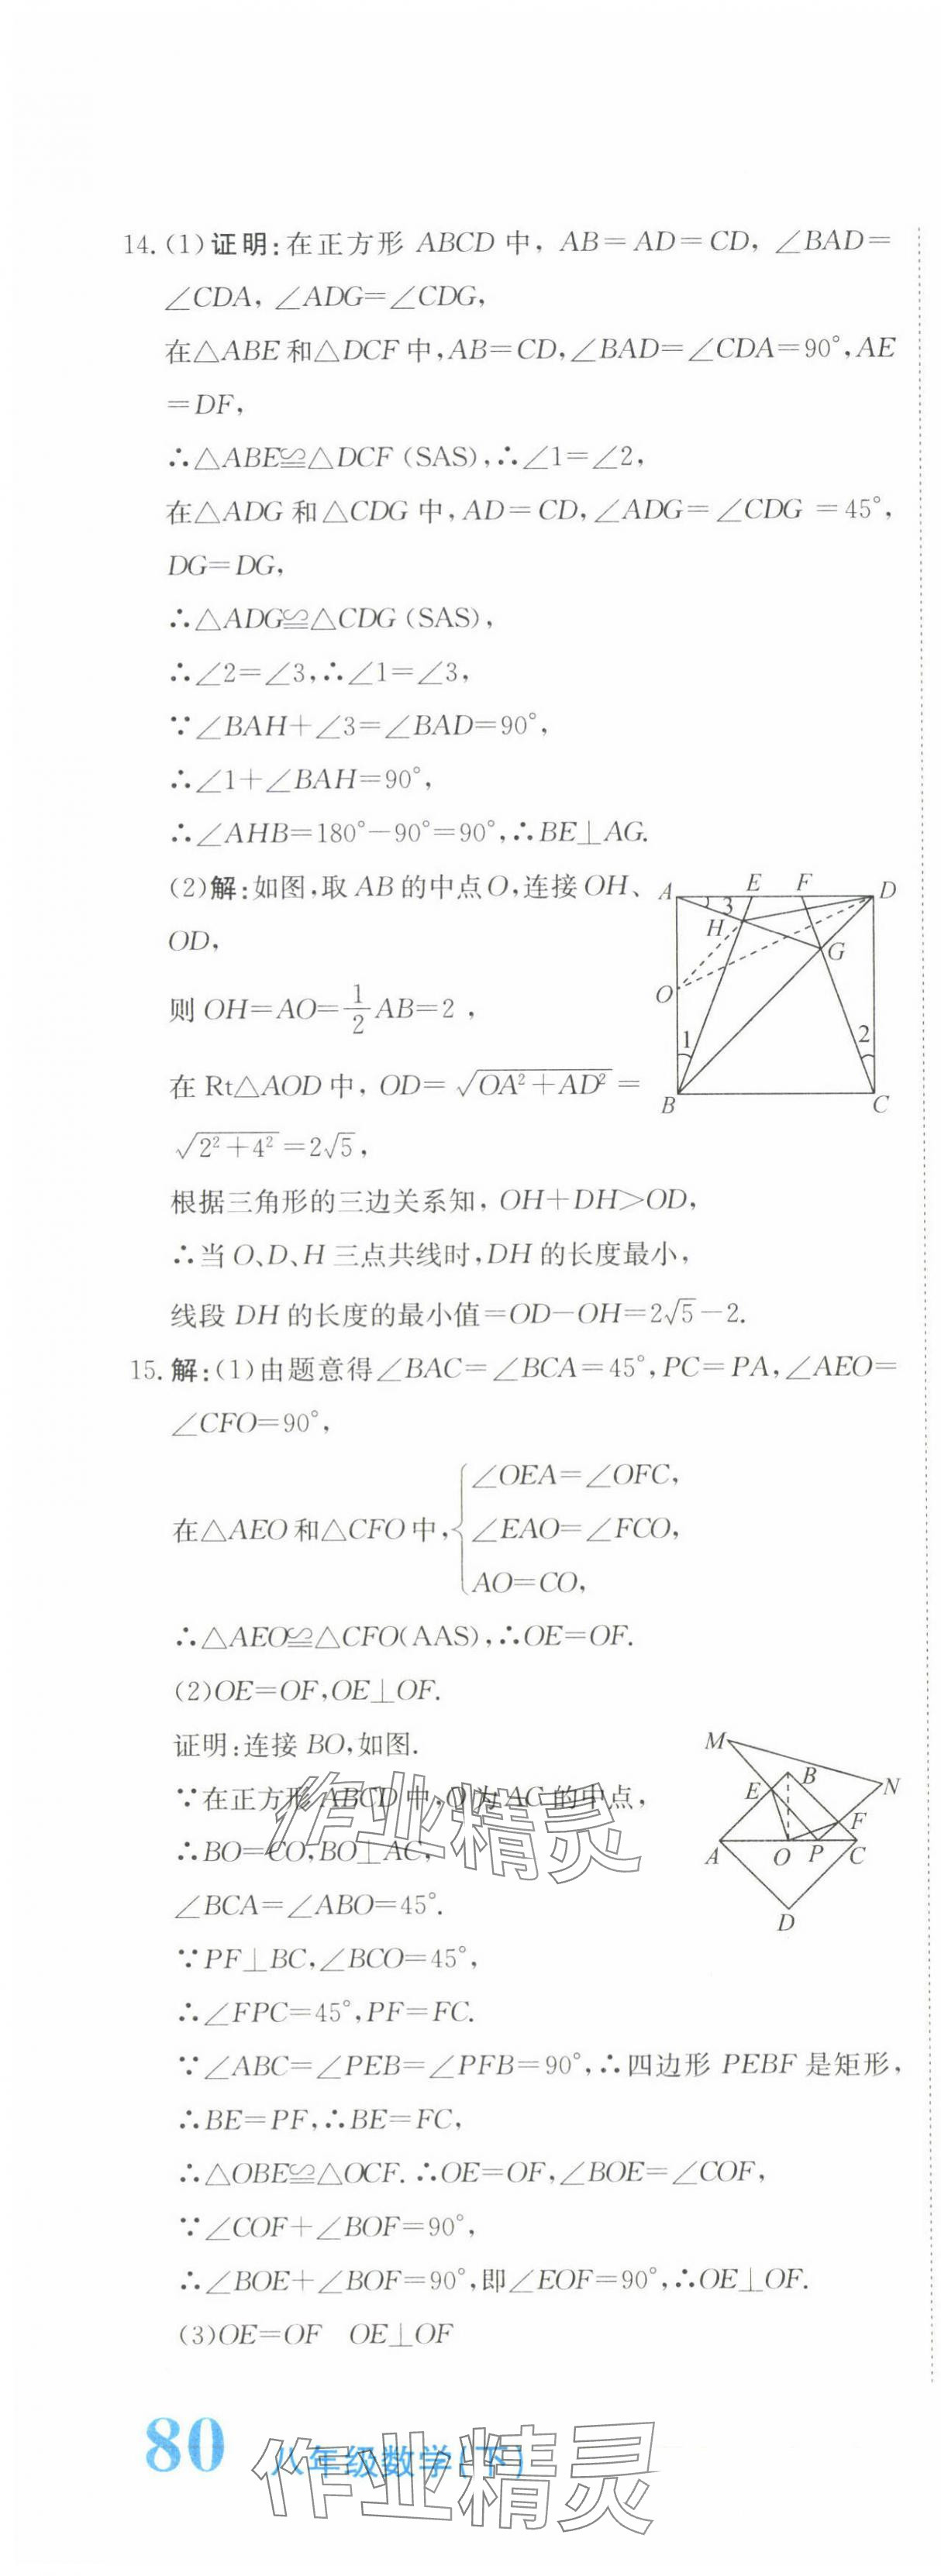 14.(1)证明:在正方形 ABCD 中, AB=AD=CD, ∠BAD=
∠CDA, ∠ADG=∠CDG,
在△ABE 和△DCF 中,AB=CD,∠BAD=∠CDA=90°,AE
=DF,
∴△ABE≌△DCF (SAS),∴∠1=∠2,
在△ADG 和△CDG 中,AD=CD,∠ADG=∠CDG =45°,
DG=DG,
∴△ADG≌△CDG (SAS),
∴∠2=∠3,∴∠1=∠3,
∵∠BAH+∠3=∠BAD=90°,
∴∠1+∠BAH=90°,
∴∠AHB=180°-90°=90°,∴BE⊥AG.
(2)解:如图,取 AB 的中点 O,连接 OH、
OD,
则 OH=AO=1/2 AB=2 ,
在 Rt△AOD 中, OD= √(OA²+AD²) =
√(2²+4²) =2√5,
A E F D
3
H
G
O
1 2
B C
根据三角形的三边关系知, OH+DH>OD,
∴当 O、D、H 三点共线时,DH 的长度最小,
线段 DH 的长度的最小值=OD-OH=2√5-2.
15.解:(1)由题意得∠BAC=∠BCA=45°,PC=PA,∠AEO=
∠CFO=90°,
在△AEO 和△CFO 中,{∠OEA=∠OFC,
∠EAO=∠FCO,
AO=CO,
∴△AEO≌△CFO(AAS),∴OE=OF.
(2)OE=OF,OE⊥OF.
证明:连接 BO,如图.
∵在正方形 ABCD 中,O 为 AC 的中点,
∴BO=CO,BO⊥AC,
∠BCA=∠ABO=45°.
M
B
E N
F
A O P C
D
∵PF⊥BC,∠BCO=45°,
∴∠FPC=45°,PF=FC.
∵∠ABC=∠PEB=∠PFB=90°,∴四边形 PEBF 是矩形,
∴BE=PF,∴BE=FC,
∴△OBE≌△OCF. ∴OE=OF,∠BOE=∠COF,
∵∠COF+∠BOF=90°,
∴∠BOE+∠BOF=90°,即∠EOF=90°,∴OE⊥OF.
(3)OE=OF OE⊥OF
作业精灵
80 八年级数学(下)
作业精灵